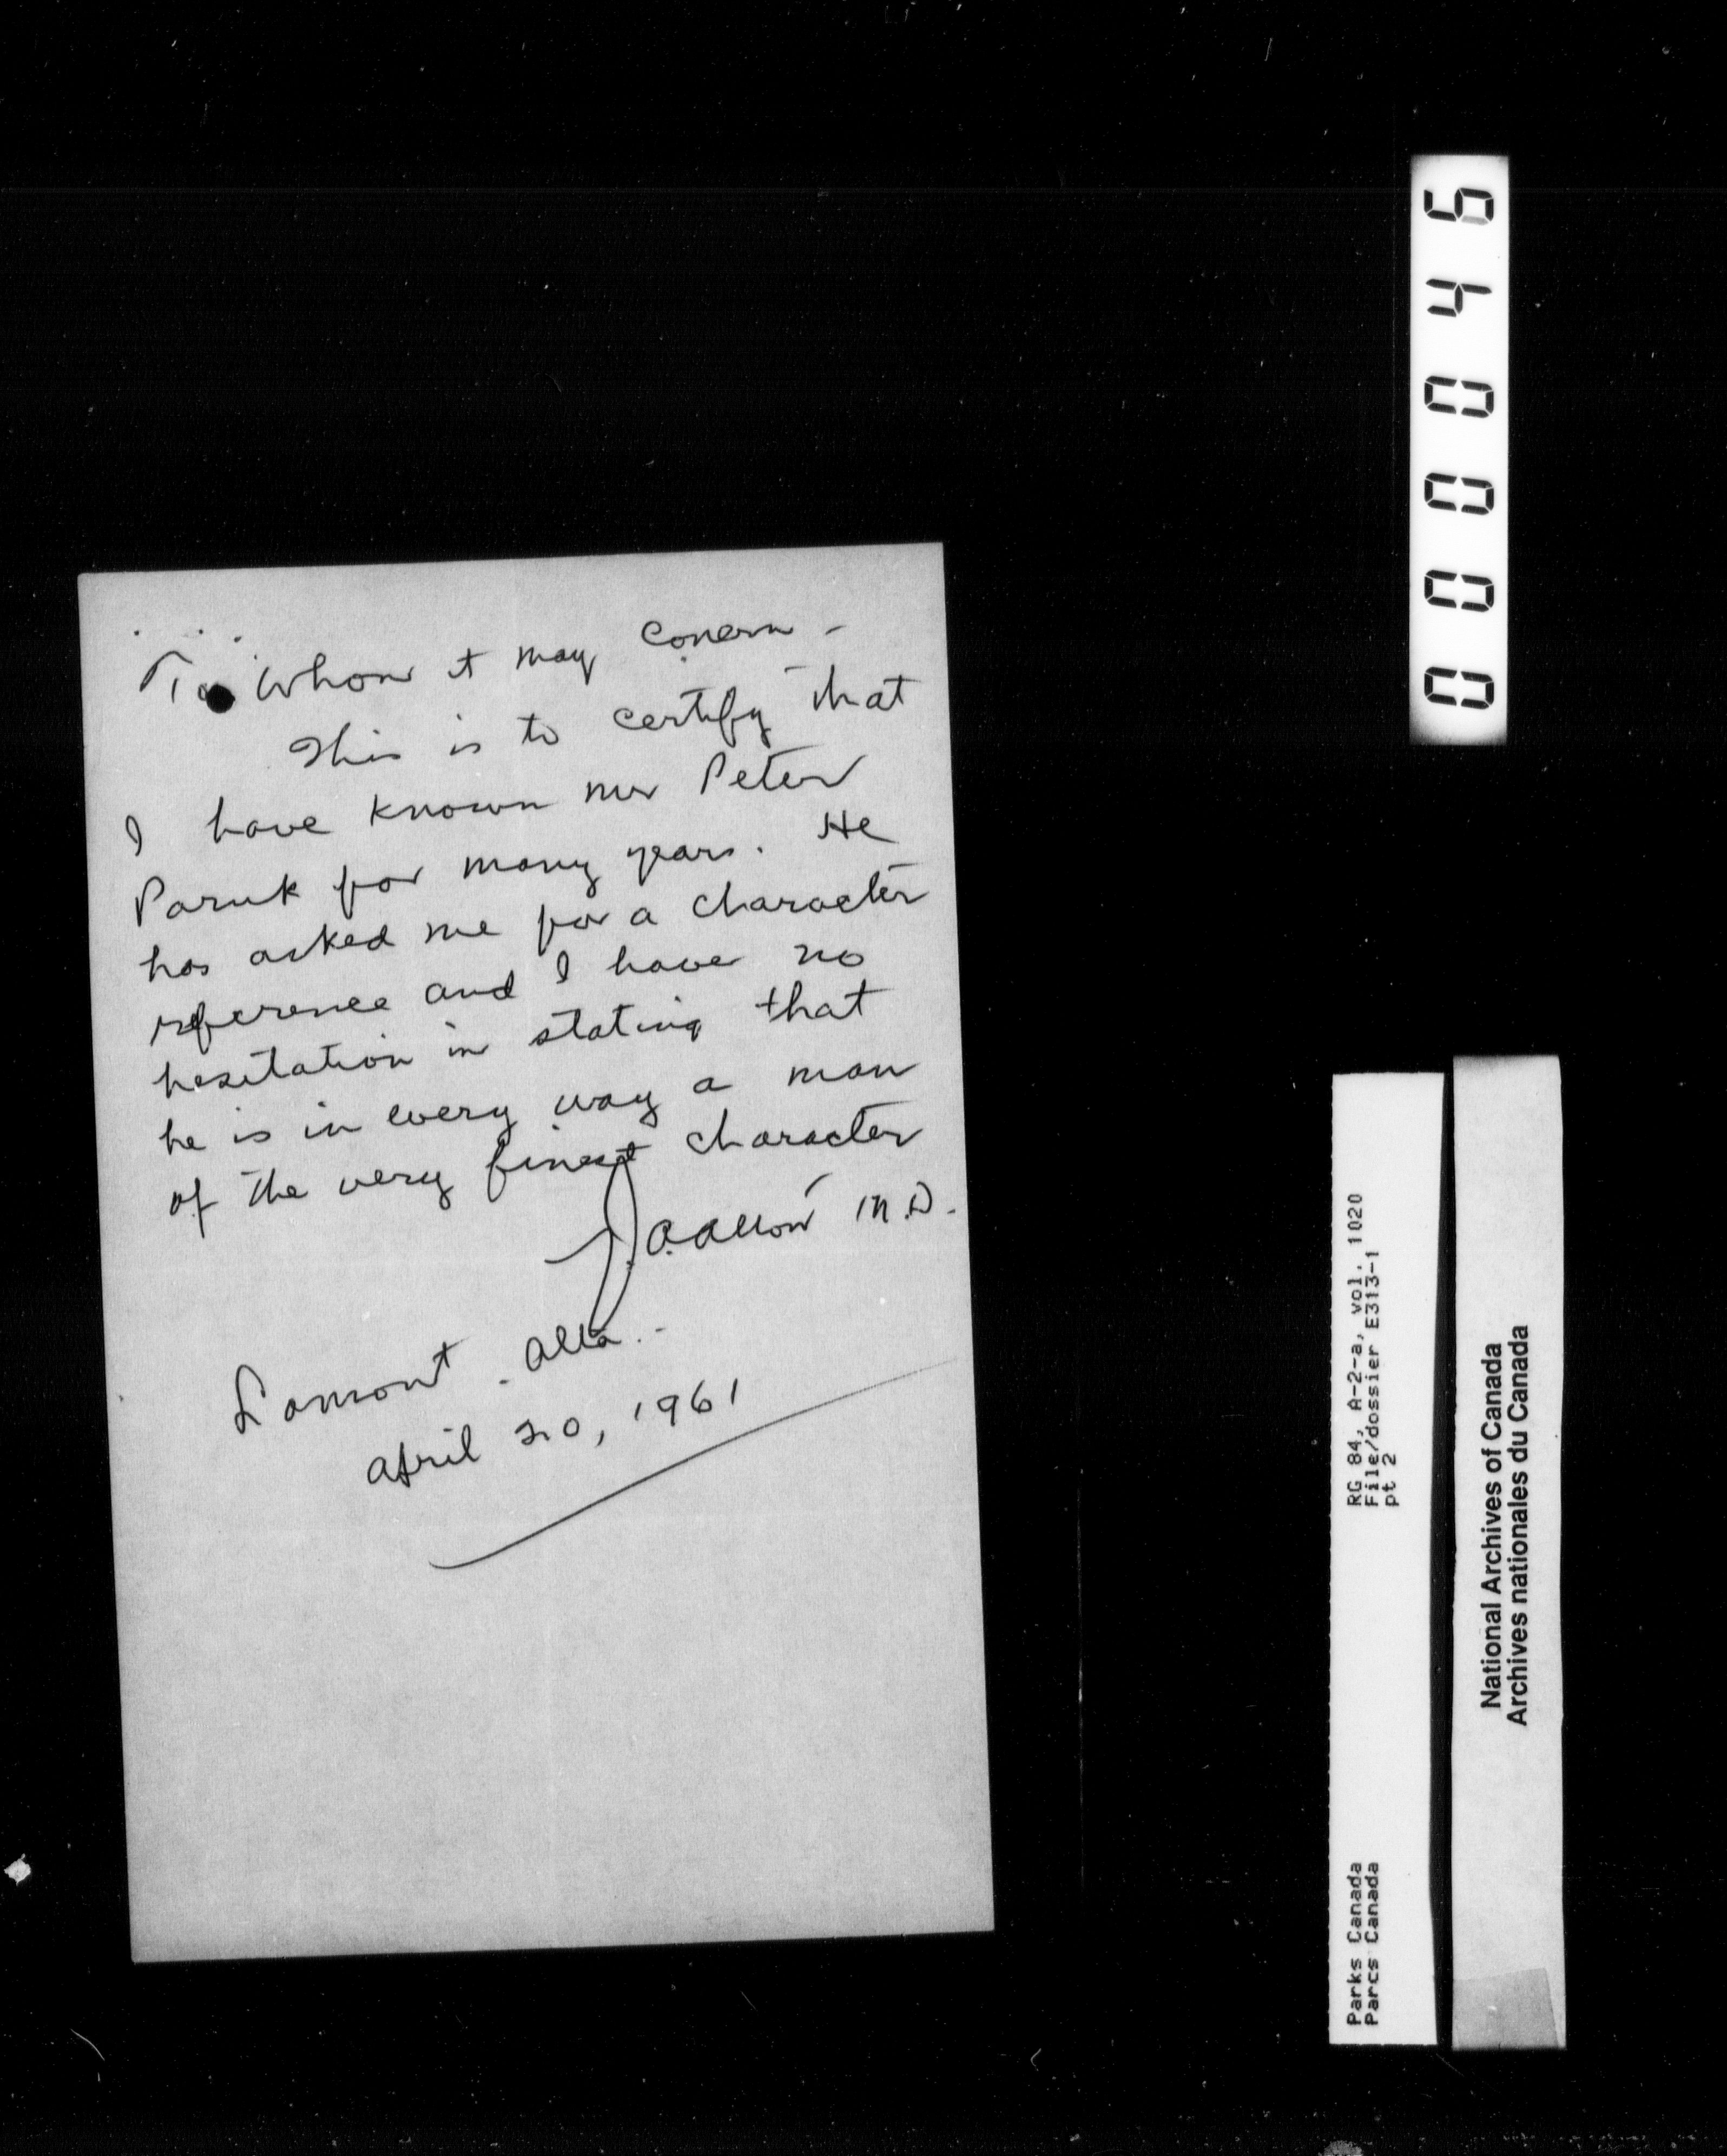 To Whom it may Concern -
This is to certify that
I have known Mr Peter
Paruk for many years. He
has asked me for a character
reference and I have no
hesitation in stating that
he is in every way a man
of the very finest character
J. A. Allon M.D.
Lamont. Alta.
April 20, 1961
000046
RG 84, A-2-a, vol. 1020
File/dossier E313-1
pt 2
Parks Canada
Parcs Canada
National Archives of Canada
Archives nationales du Canada